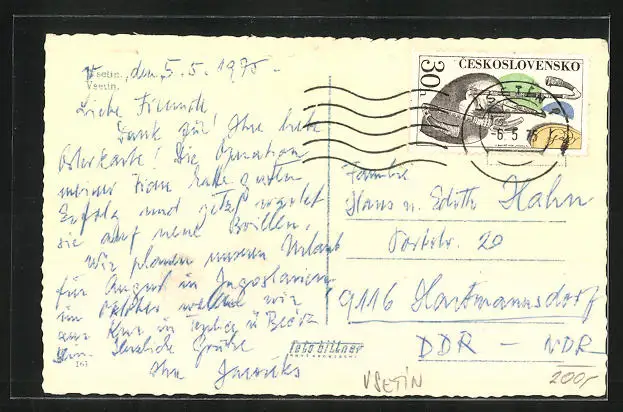 Vsetín, den 5. 5. 1975.
Vsetín.
Liebe Freunde
Dank für Ihre liebe
Osterkarte! Die Operation
meiner Frau hatte guten
Erfolg und jetzt wartet
sie auf neue Brillen.
Wir planen unseren Urlaub
für August in Jugoslavien
im Oktober wollen wir
zur Kur in Teplice
Herzliche Grüße
Ihre
161
foto bittner
ČESKOSLOVENSKO
30h
-6.5.75
Familie
Hans u. Edith Hahn
20
9116 Hartmannsdorf
DDR - NDR
VSETÍN
200,-